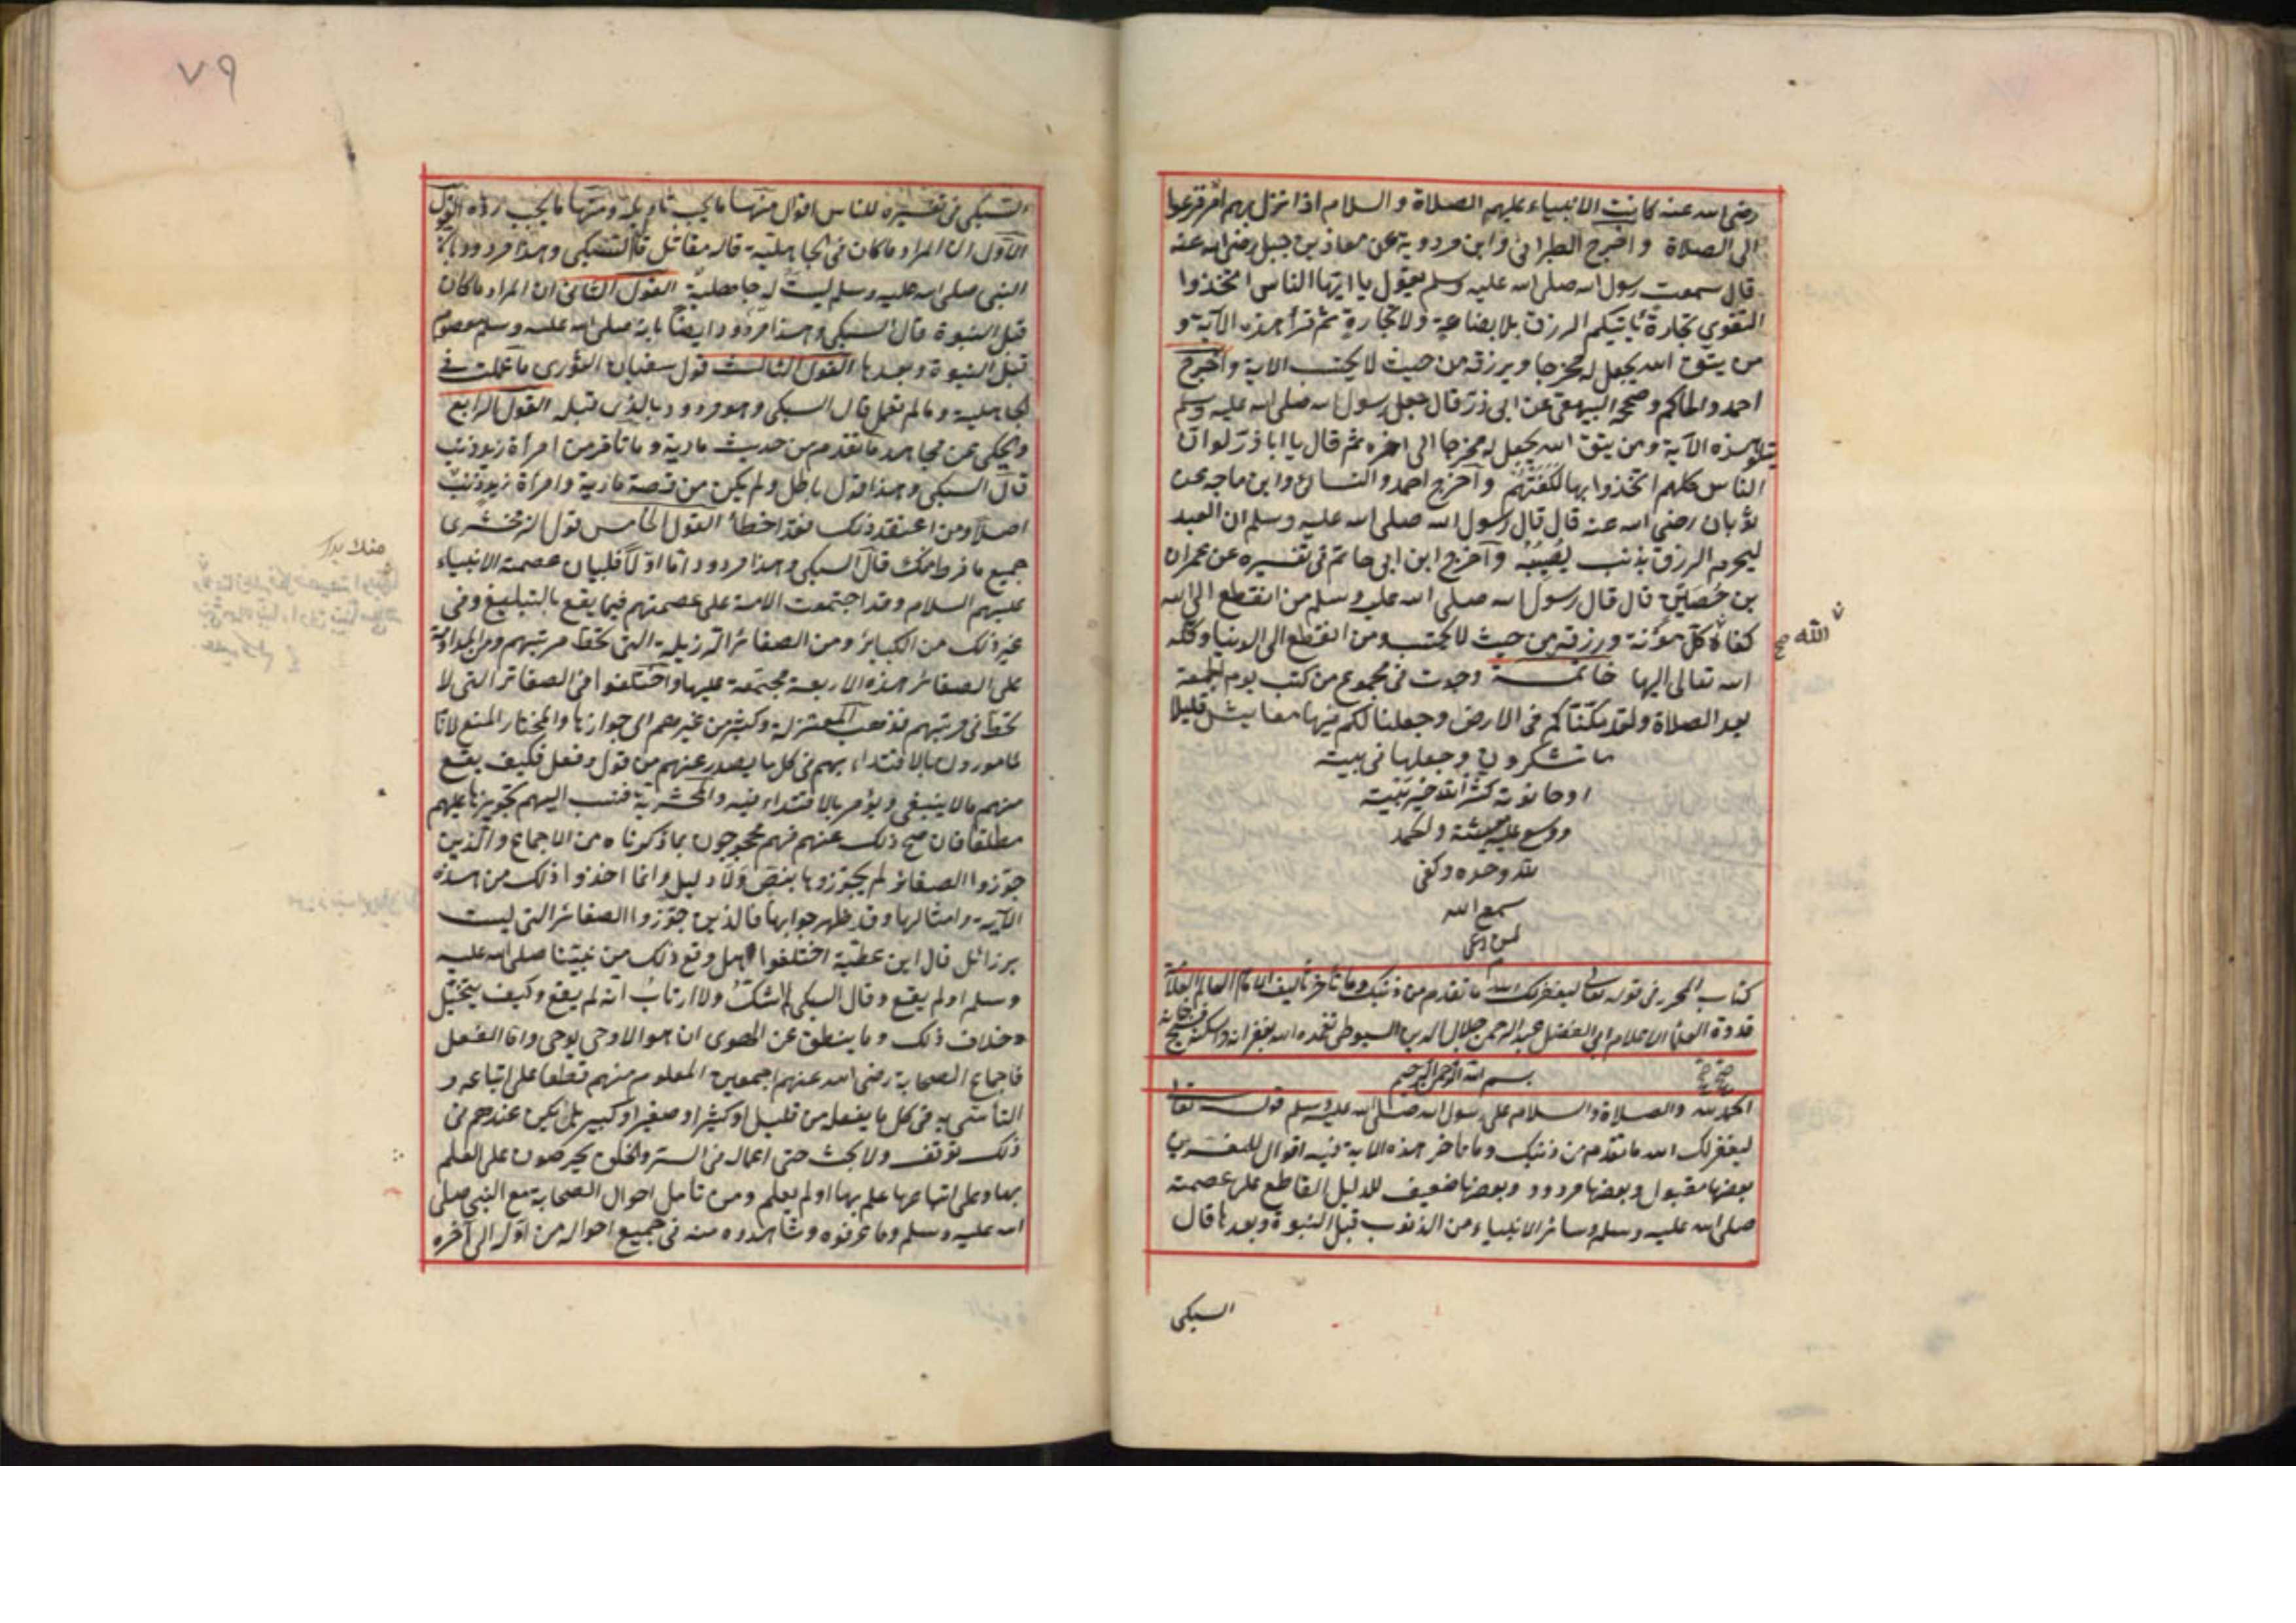 رضى الله عنه كانت الانبياء عليهم الصلاة والسلام اذا نزل بهم امر فزعوا
الى الصلاة واخرج الطبرانى وابن مردوية عن معاذ بن جبل رضى الله عنه
قال سمعت رسول الله صلى الله عليه وسلم يقول يا ايها الناس اتخذوا
التقوى تجارة يأتيكم الرزق بلا بضاعة ولا تجارة ثم قرأ هذه الآية و
من يتق الله يجعل له مخرجا ويرزقه من حيث لا يحتسب الاية واخرج
احمد والحاكم وصححه البيهقى عن ابى ذر قال جعل رسول الله صلى الله عليه وسلم
يتلو هذه الآية ومن يتق الله يجعل له مخرجا الى اخره ثم قال يا ابا ذر لو ان
الناس كلهم اتخذوا بها لكفتهم وآخرج احمد والنسائ وابن ماجه عن
ثوبان رضى الله عنه قال قال رسول الله صلى الله عليه وسلم ان العبد
ليحرم الرزق بذنب يصيبه وآخرج ابن ابى حاتم فى تفسيره عن عمران
بن حصين قال قال رسول الله صلى الله عليه وسلم من انقطع الى الله
كفاه كل مؤنة ورزقه من حيث لا يحتسب ومن انقطع الى الدنيا وكله
الله صح
الله تعالى اليها خاتمة وجدت فى مجموع من كتب يوم الجمعة
بعد الصلاة ولقد مكناكم فى الارض وجعلنا لكم فيها معايش قليلا
ما تشكرون وجعلها فى بيته
او حانوته كثر الله خير بيته
ووسع عليه معيشته والحمد
لله وحده وكفى
سمع الله
لمن دعى
م
كتاب المحرر فى قوله تعالى ليغفر لك الله ما تقدم من ذنبك وما تأخر تأليف الامام العالم العلامة
قدوة العلماء الاعلام ابى الفضل عبد الرحمن جلال الدين السيوطى تغمده الله بغفرانه واسكنه فسيح جنانه
بسم الله الرحمن الرحيم
الحمد لله والصلاة والسلام على رسول الله صلى الله عليه وسلم قوله تعالى
ليغفر لك الله ما تقدم من ذنبك وما تأخر هذه الاية فيه اقوال للمفسرين
بعضها مقبول وبعضها مردود وبعضها ضعيف للدليل القاطع على عصمته
صلى الله عليه وسلم وسائر الانبياء من الذنوب قبل النبوة وبعدها قال
السبكى
٧٩
السبكى فى تفسيره للناس اقوال منها ما يجب تأويله ومنها ما يجب رده القول
الاول ان المراد ما كان فى الجاهلية قاله مقاتل قال السبكى وهذا مردود بان
النبى صلى الله عليه وسلم ليست له جاهلية القول الثانى ان المراد ما كان
قبل النبوة قال السبكى وهذا مردود ايضا بانه صلى الله عليه وسلم معصوم
قبل النبوة وبعدها القول الثالث قول سفيان الثورى ما عملت فى
الجاهلية وما لم تعمل قال السبكى وهو مردود بالذى قبله القول الرابع
ويحكى عن مجاهد ما تقدم من حديث مارية وما تأخر من امرأة زيد زينب
قال السبكى وهذا قول باطل ولم يكن من قصة مارية وامرأة زيد ذنب
اصلا ومن اعتقد ذلك فقد اخطأ القول الخامس قول الزمخشرى
جميع ما فرط منك قال السبكى وهذا مردود اما اولا فلبيان عصمة الانبياء
عليهم السلام وقد اجتمعت الامة على عصمتهم فيما يقع بالتبليغ وفى
غير ذلك من الكبائر ومن الصغائر الرزيلة التى تحط مرتبتهم ومن المداومة
على الصغائر هذه الاربعة مجتمعة عليها واختلفوا فى الصغائر التى لا
تحط فى مرتبتهم فذهب المعتزلة وكثير من غيرهم الى جوازها والمختار المنع لانا
مامورون بالاقتداء بهم فى كل ما يصدر عنهم من قول وفعل فكيف يقع
منهم ما لا ينبغى ويؤمر بالاقتداء فيه والحشرية فنسب اليهم تجويزها عليهم
مطلقا فان صح ذلك عنهم فهم محجوجون بما ذكرناه من الاجماع والذين
جوزوا الصغائر لم يجوزوها بنص ولا دليل وانما اخذوا ذلك من هذه
الآية وامثالها وقد ظهر جوابها فالذين جوزوا الصغائر التى ليست
برزائل قال ابن عطية اختلفوا هل وقع ذلك من نبينا صلى الله عليه
وسلم او لم يقع وقال السبكى لا شك ولا ارتاب انه لم يقع وكيف يتخيل
خلاف ذلك وما ينطق عن الهوى ان هو الا وحى يوحى واما الفعل
فاجماع الصحابة رضى الله عنهم اجمعين المعلوم منهم قطعا على اتباعه و
التأسى به فى كل ما يفعله من قليل او كثير او صغير او كبير بل لم يكن عندهم فى
ذلك توقف ولا بحث حتى اعماله فى الستر والخلوة يحرصون على العلم
بها وعلى اتباعها علم بها او لم يعلم ومن تأمل احوال الصحابة مع النبى صلى
الله عليه وسلم وما عرفوه وشاهدوه منه فى جميع احواله من اوله الى آخره